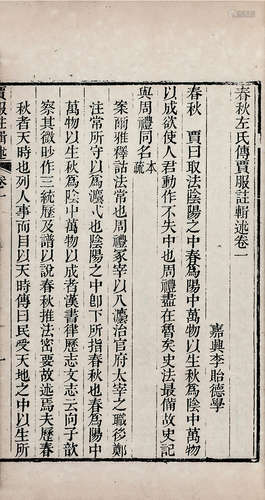 春秋左氏傳賈服註輯述卷一
嘉興李貽德學
春秋　賈曰取法陰陽之中春為陽中萬物以生秋為陰中萬物
以成欲使人君動作不失中也周禮盡在魯矣史法最備故史記
與周禮同名本疏
案爾雅釋詁法常也周禮冢宰以八灋治官府太宰之職後鄭
注常所守以為灋式也陰陽之中卽下所指春秋也春為陽中
萬物以生秋為陰中萬物以成者漢書律歷志文志云向子歆
察其微眇作三統歷及譜以說春秋推法密要故述焉夫歷春
秋者天時也列人事而目以天時傳曰民受天地之中以生所
賈服註輯述
卷一